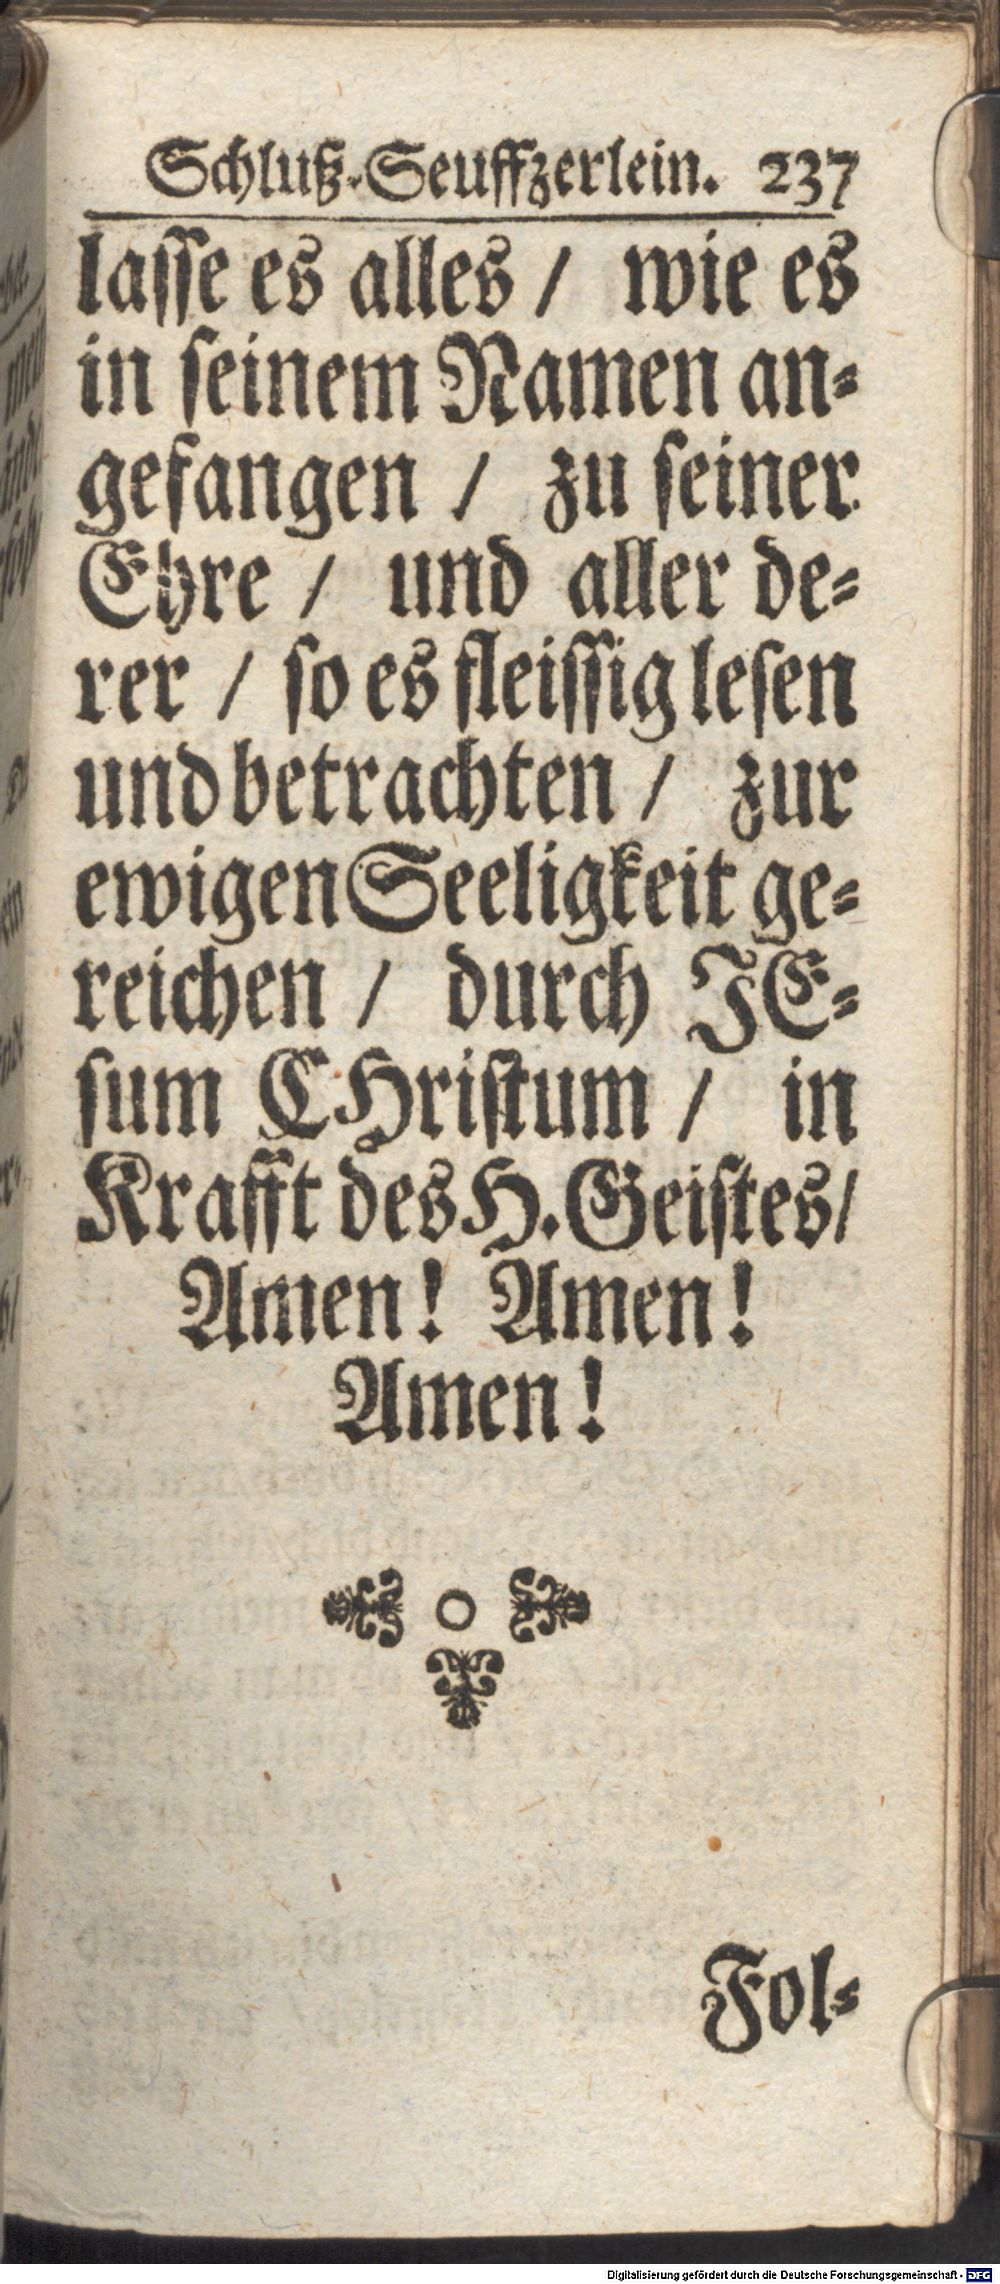 Schluß-Seuffzerlein. 237
lasse es alles / wie es
in seinem Namen an-
gefangen / zu seiner
Ehre / und aller de-
rer / so es fleissig lesen
und betrachten / zur
ewigen Seeligkeit ge-
reichen / durch JE-
sum CHristum / in
Krafft des H. Geistes/
Amen! Amen!
Amen!
Fol-
Digitalisierung gefördert durch die Deutsche Forschungsgemeinschaft - DFG